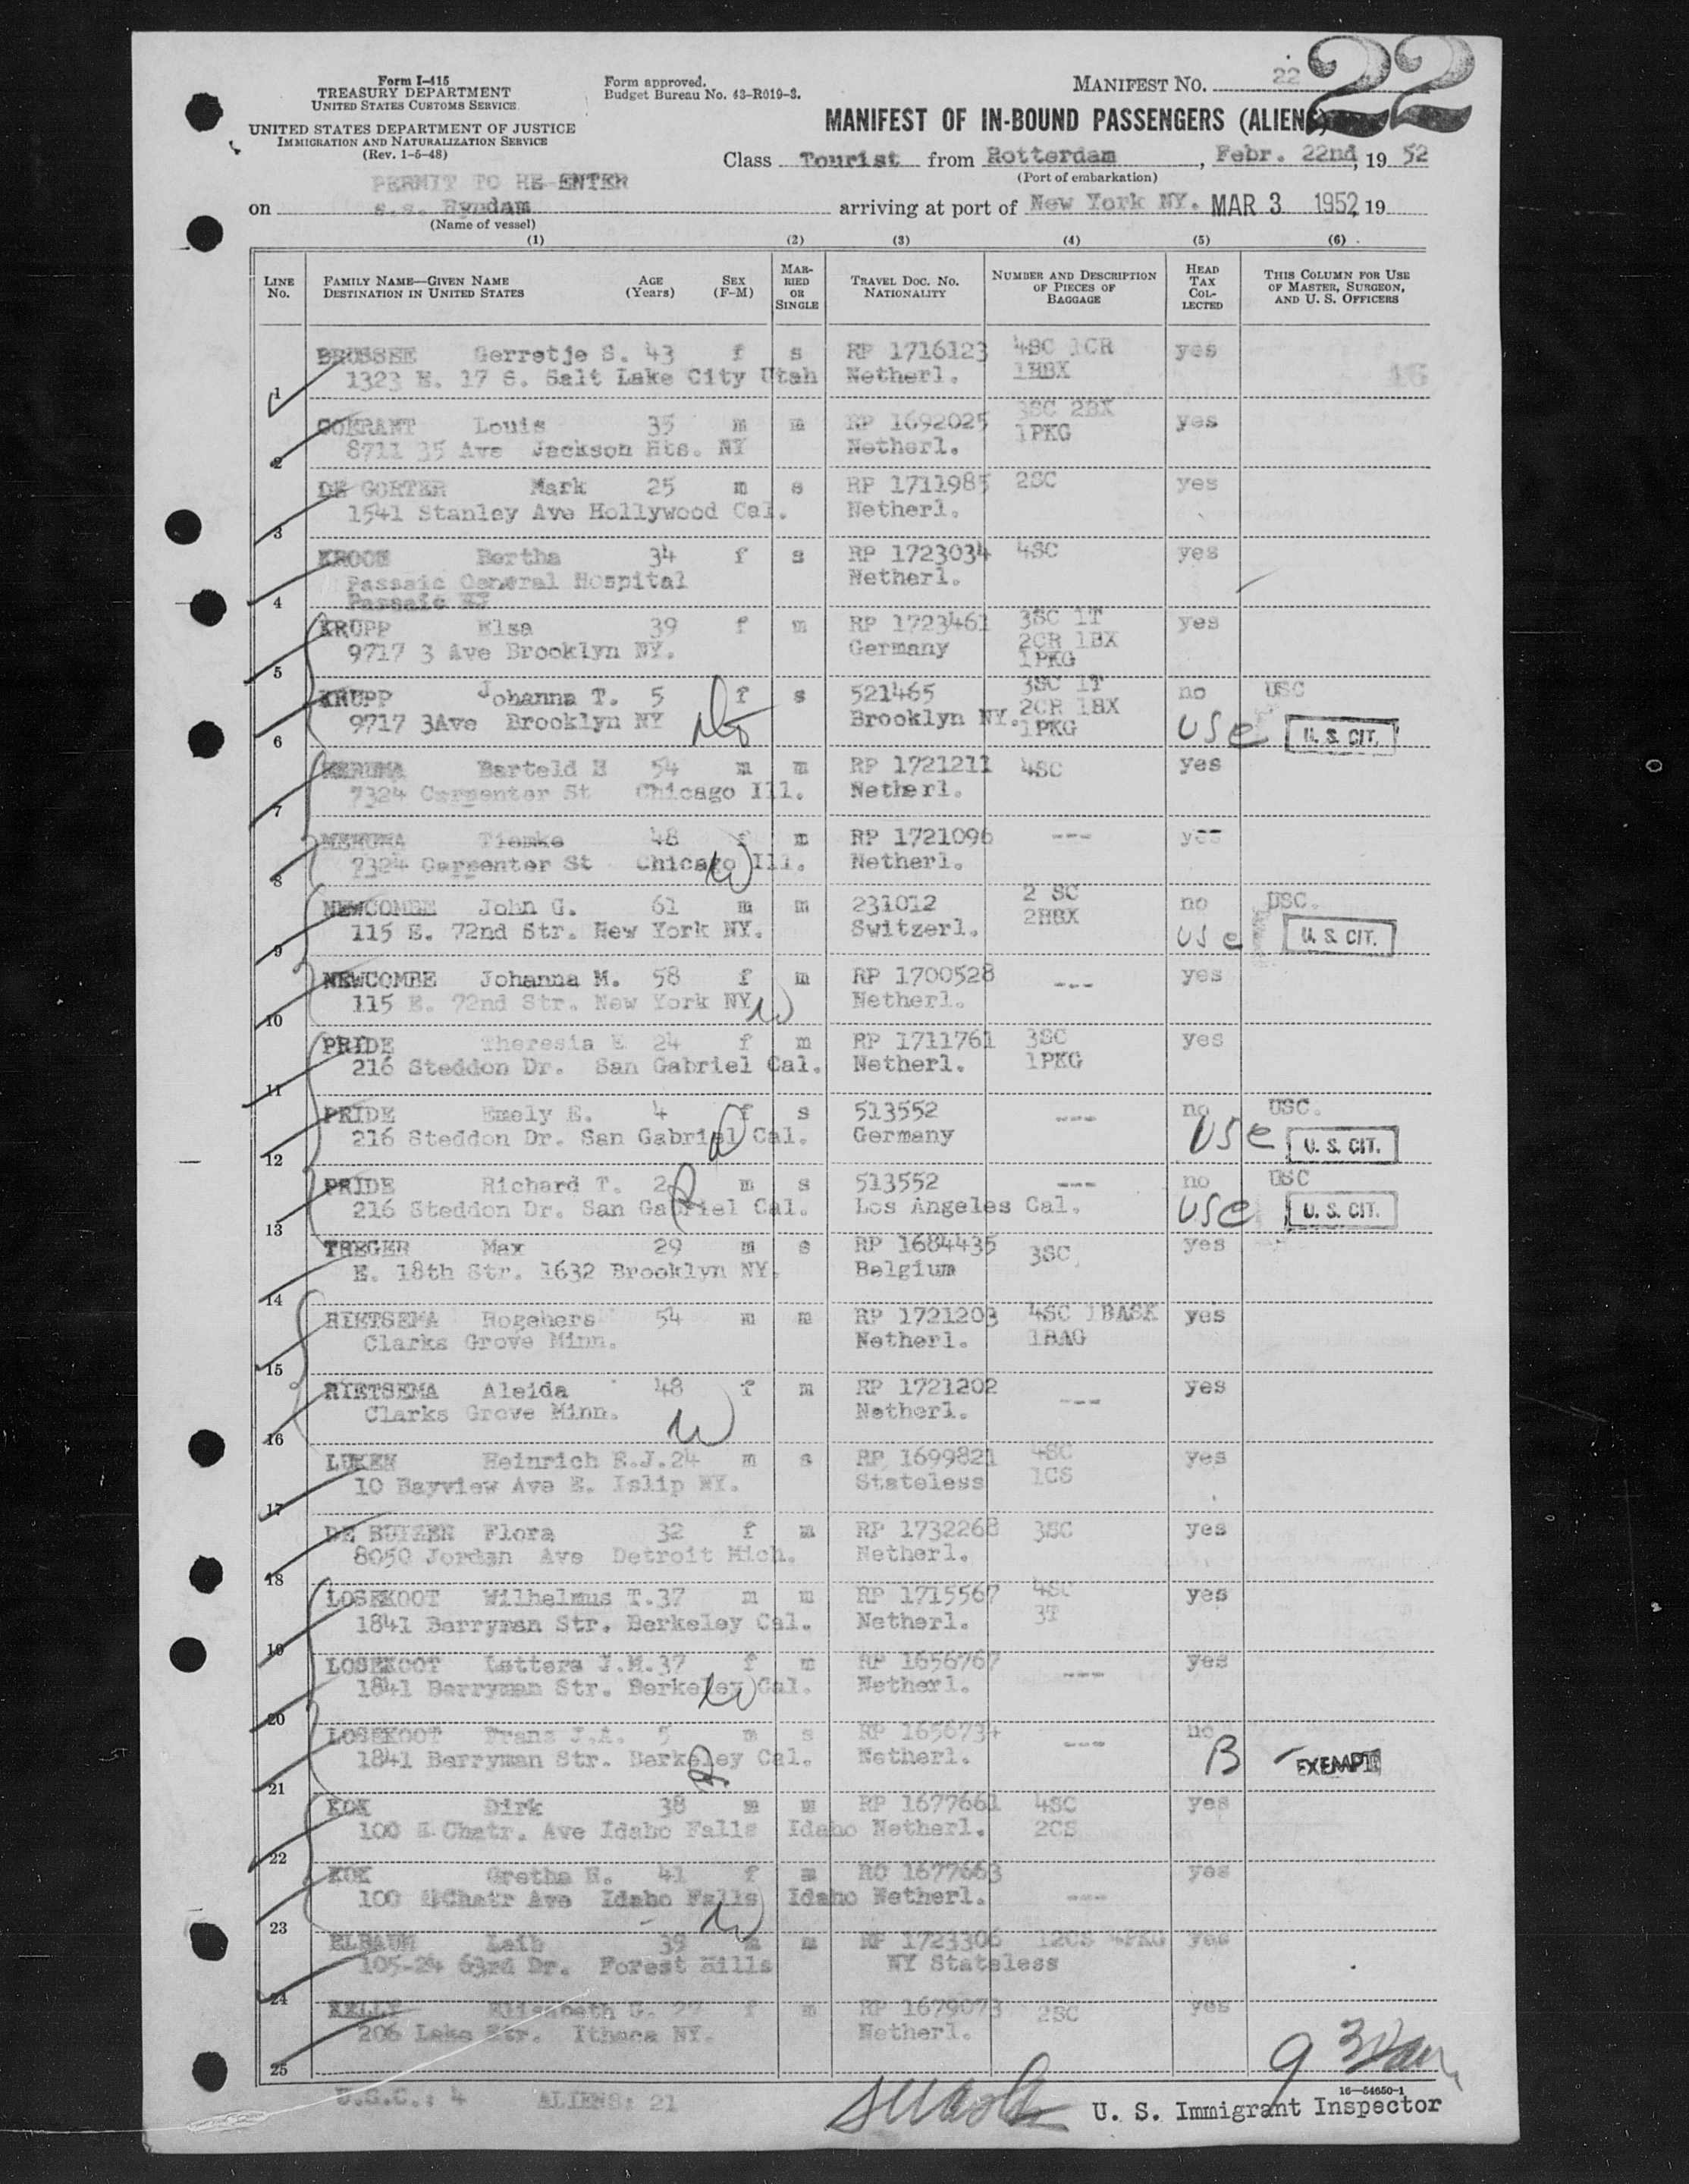 22
Form I-415
TREASURY DEPARTMENT
UNITED STATES CUSTOMS SERVICE
UNITED STATES DEPARTMENT OF JUSTICE
IMMIGRATION AND NATURALIZATION SERVICE
(Rev. 1-5-48)
Form approved.
Budget Bureau No. 43-R019-3.
MANIFEST No. 22
MANIFEST OF IN-BOUND PASSENGERS (ALIENS)
Class Tourist from Rotterdam, Febr. 22nd, 19 52
(Port of embarkation)
PERMIT TO RE-ENTER
on s.s. Ryndam arriving at port of New York NY. MAR 3 1952, 19
(Name of vessel)
(1) (2) (3) (4) (5) (6)
LINE No. FAMILY NAME—GIVEN NAME DESTINATION IN UNITED STATES AGE (Years) SEX (F-M) MARRIED OR SINGLE TRAVEL DOC. No. NATIONALITY NUMBER AND DESCRIPTION OF PIECES OF BAGGAGE HEAD TAX COLLECTED THIS COLUMN FOR USE OF MASTER, SURGEON, AND U. S. OFFICERS
BROSSE Gerretje S. 43 f s RP 1716123 4SC 1CR yes
1 1323 E. 17 S. Salt Lake City Utah Netherl. 1HBX 16
Louis 35 m m RP 1692025 3SC 2BX yes
2 8711 35 Ave Jackson Hts. NY Netherl. 1PKG
DE GORTER Mark 25 m s RP 1711985 2SC yes
3 1541 Stanley Ave Hollywood Cal. Netherl.
KROON Bertha 34 f s RP 1723034 4SC yes
Passaic General Hospital Netherl.
4 Passaic NJ
KRUPP Elsa 39 f m RP 1723461 3SC 1T yes
9717 3 Ave Brooklyn NY. Germany 2CR 1BX
5 1PKG
KRUPP Johanna T. 5 f s 521465 3SC 1T no USC
9717 3Ave Brooklyn NY Brooklyn NY. 2CR 1BX
6 1PKG USC U. S. CIT.
Barteld H 54 m m RP 1721211 4SC yes
7 7324 Carpenter St Chicago Ill. Netherl.
Tiemke 48 f m RP 1721096 --- yes
8 7324 Carpenter St Chicago Ill. Netherl.
NEWCOMBE John G. 61 m m 231012 2 SC no USC.
9 115 E. 72nd Str. New York NY. Switzerl. 2HBX USC U. S. CIT.
NEWCOMBE Johanna M. 58 f m RP 1700528 --- yes
10 115 E. 72nd Str. New York NY Netherl.
PRIDE Theresia E 24 f m RP 1711761 3SC yes
11 216 Steddon Dr. San Gabriel Cal. Netherl. 1PKG
PRIDE Emely E. 4 f s 513552 --- no USC.
12 216 Steddon Dr. San Gabriel Cal. Germany USC U. S. CIT.
PRIDE Richard T. 2 m s 513552 --- no USC
13 216 Steddon Dr. San Gabriel Cal. Los Angeles Cal. USC U. S. CIT.
TREGER Max 29 m s RP 1684435 3SC yes
14 E. 18th Str. 1632 Brooklyn NY. Belgium
RIETSEMA Rogehers 54 m m RP 1721203 4SC 1BASK yes
15 Clarks Grove Minn. Netherl. 1BAG
RIETSEMA Aleida 48 f m RP 1721202 --- yes
16 Clarks Grove Minn. Netherl.
LUKEN Heinrich E.J. 24 m s RP 1699821 4SC yes
17 10 Bayview Ave E. Islip NY. Stateless 1CS
DE Flora 32 f m RP 1732268 3SC yes
18 8050 Jordan Ave Detroit Mich. Netherl.
LOSEKOOT Wilhelmus T. 37 m m RP 1715567 4SC yes
19 1841 Berryman Str. Berkeley Cal. Netherl. 3T
LOSEKOOT Lettera J.M. 37 f m RP 1656767 --- yes
20 1841 Berryman Str. Berkeley Cal. Netherl.
LOSEKOOT Frans J.A. 5 m s RP 1656734 --- no
21 1841 Berryman Str. Berkeley Cal. Netherl. B EXEMPT
KOK Dirk 38 m m RP 1677661 4SC yes
22 100 E Chatr. Ave Idaho Falls Idaho Netherl. 2CS
KOK Gretha H. 41 f m RO 1677663 yes
23 100 Chatr Ave Idaho Falls Idaho Netherl. ---
ELBAUM Leib 39 m m RP 1723306 12CS 4PKG yes
24 105-24 63rd Dr. Forest Hills NY Stateless
KELLY Elisabeth f m RP 1679073 2SC yes
25 206 Lake Str. Ithaca NY. Netherl.
U.S.C.: 4 ALIENS: 21
16—54650-1
U. S. Immigrant Inspector